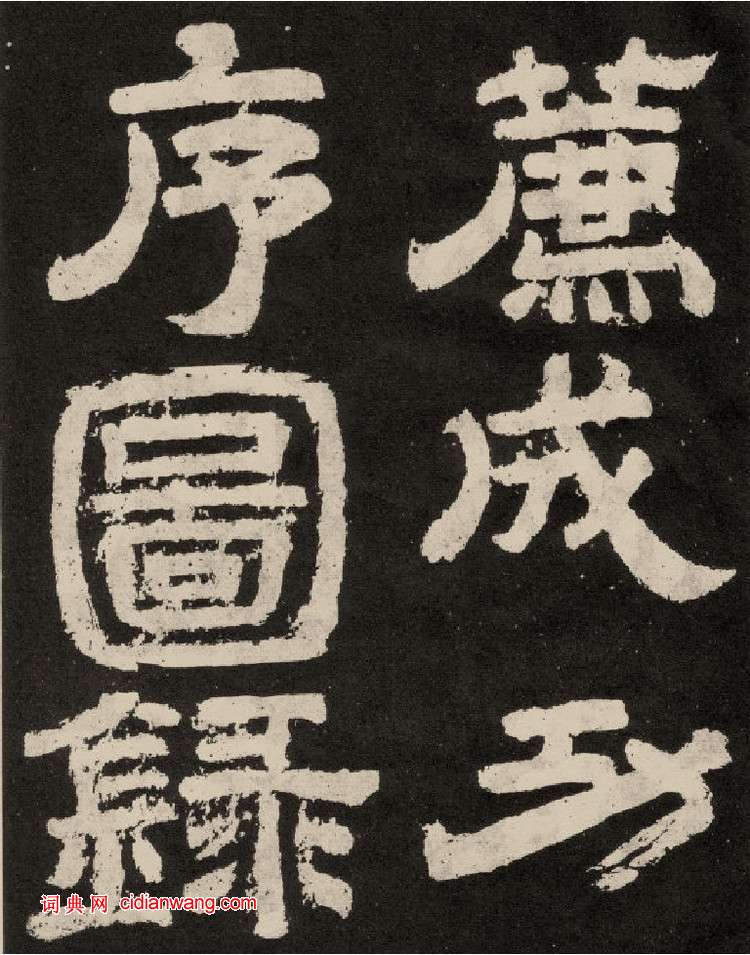 薦成功
序圖錄
词典网 cidianwang.com